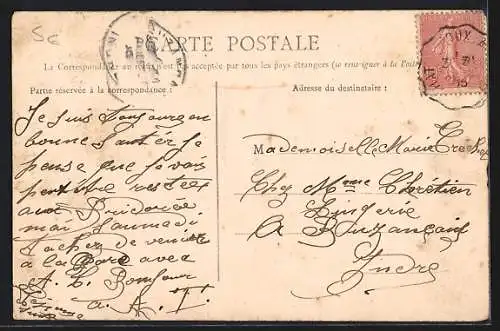 5c
CARTE POSTALE
La Correspondance au recto n'est pas acceptée par tous les pays étrangers (se renseigner à la Poste
Partie réservée à la correspondance :
Adresse du destinataire :
Je suis toujours en
bonne santé je
pense que je vais
peut être rester
aux
mai samedi
tacher de venir
à la gare avec
A. T. Bonjour
a. A. T.
Mademoiselle Marie
Chez Mme Chrétien
Lingerie
A Buzançais
Indre